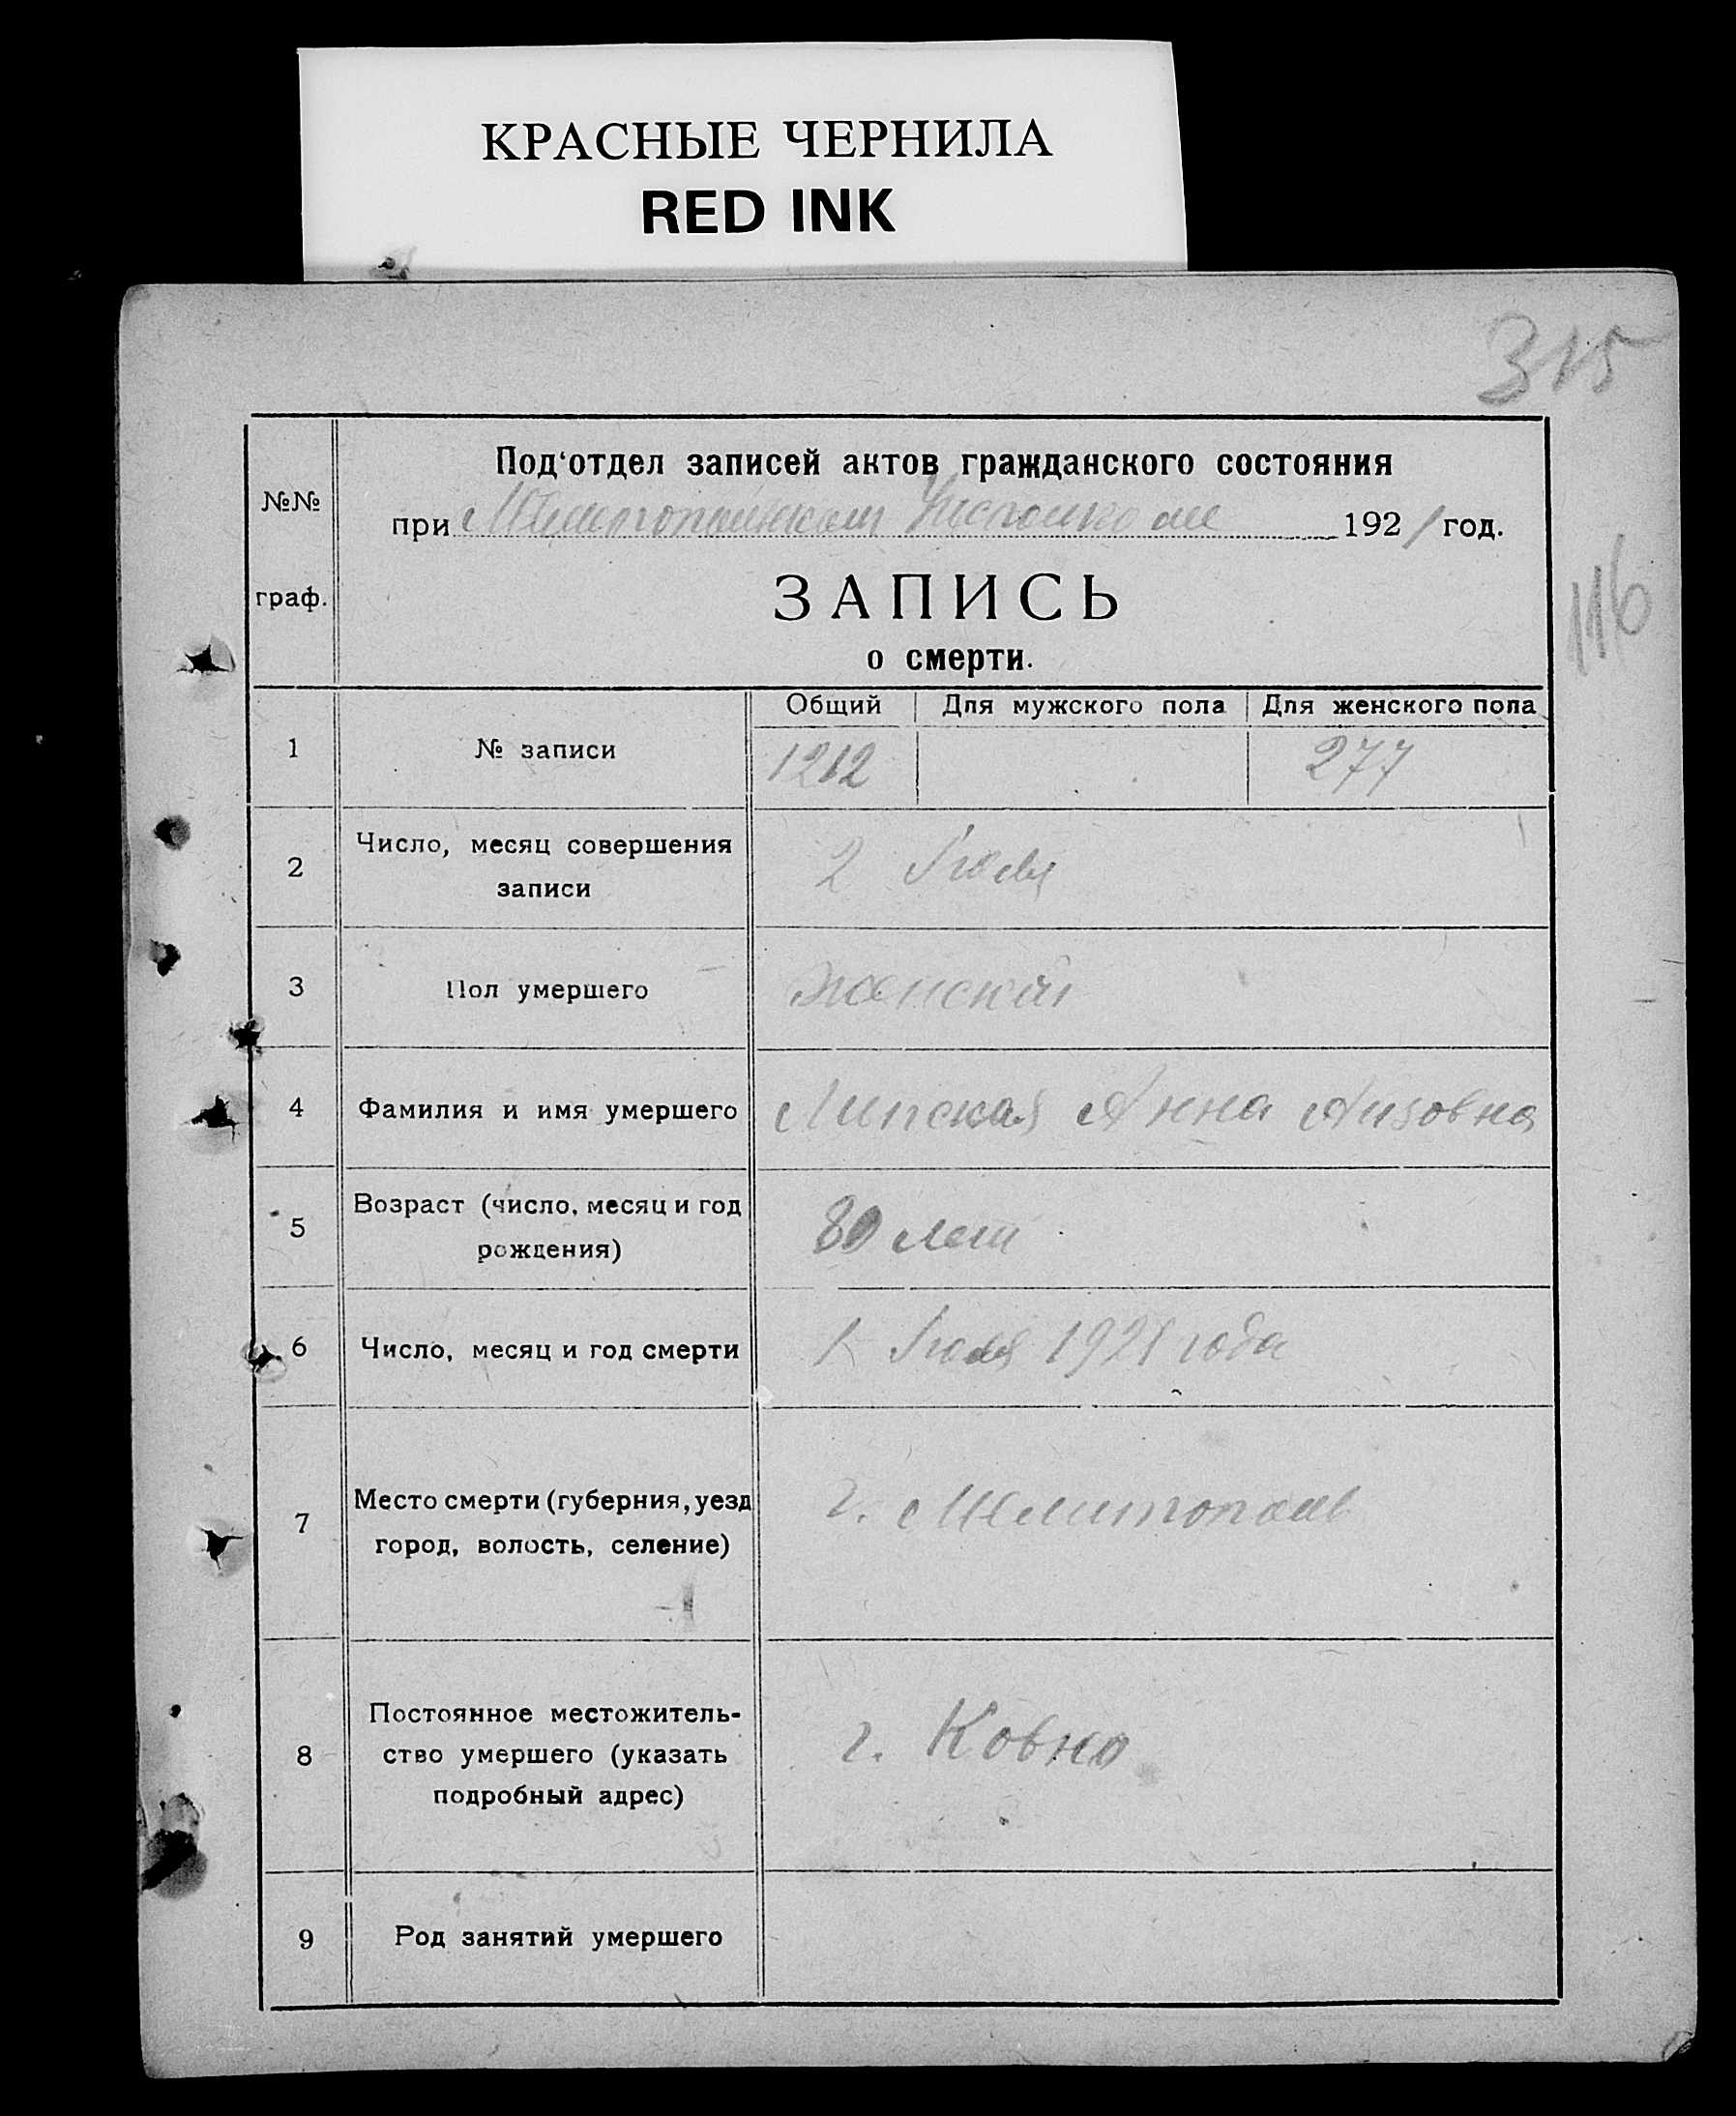 КРАСНЫЕ ЧЕРНИЛА
RED INK
315
№№
граф.
Под‘отдел записей актов гражданского состояния
при Мелитопольском Исполкоме 1921 год.
ЗАПИСЬ
о смерти.
116
Общий Для мужского пола Для женского пола
1 № записи 1212 277
2 Число, месяц совершения записи 2 Июля
3 Пол умершего женский
4 Фамилия и имя умершего Липская Анна
5 Возраст (число, месяц и год рождения) 80 лет
6 Число, месяц и год смерти 1 Июля 1921 года
7 Место смерти (губерния, уезд город, волость, селение) г. Мелитополь
8 Постоянное местожитель-
ство умершего (указать г. Ковно
подробный адрес)
9 Род занятий умершего